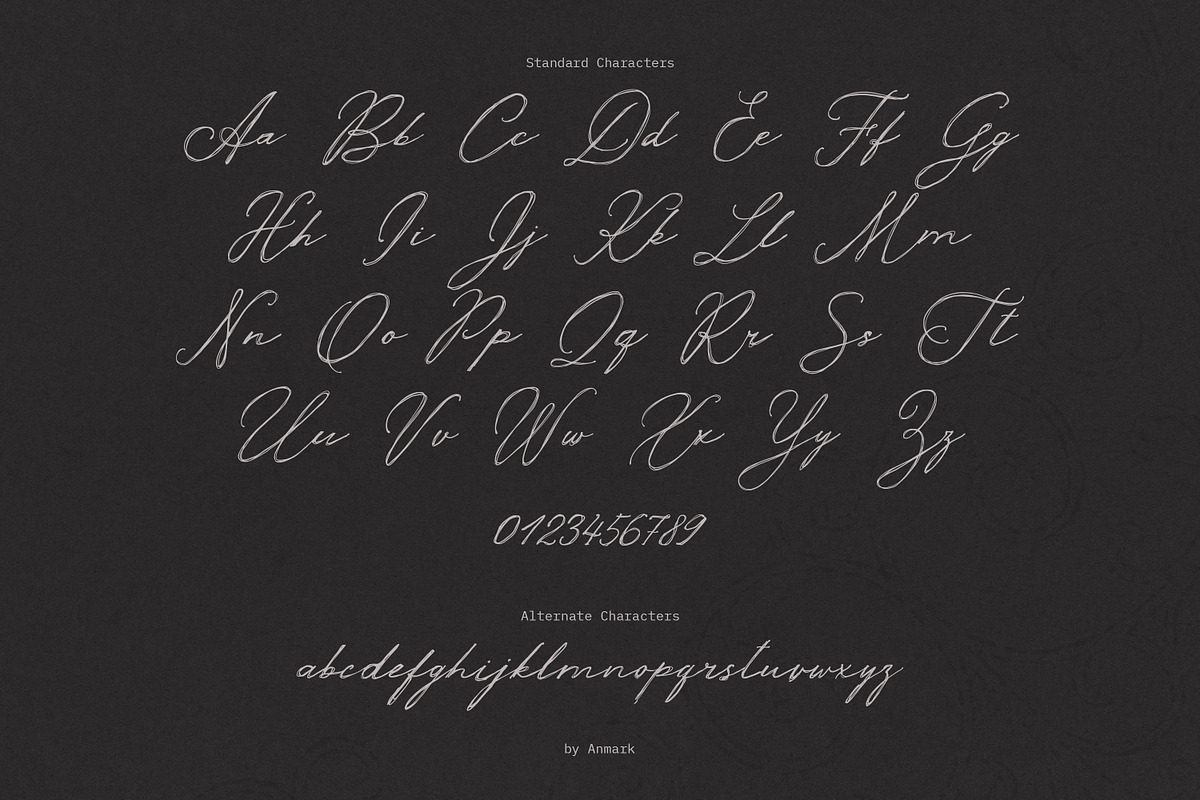 Standard Characters
Aa Bb Cc Dd Ee Ff Gg
Hh Ii Jj Kk Ll Mm
Nn Oo Pp Qq Rr Ss Tt
Uu Vv Ww Xx Yy Zz
0123456789
Alternate Characters
abcdefghijklmnopqrstuvwxyz
by Anmark